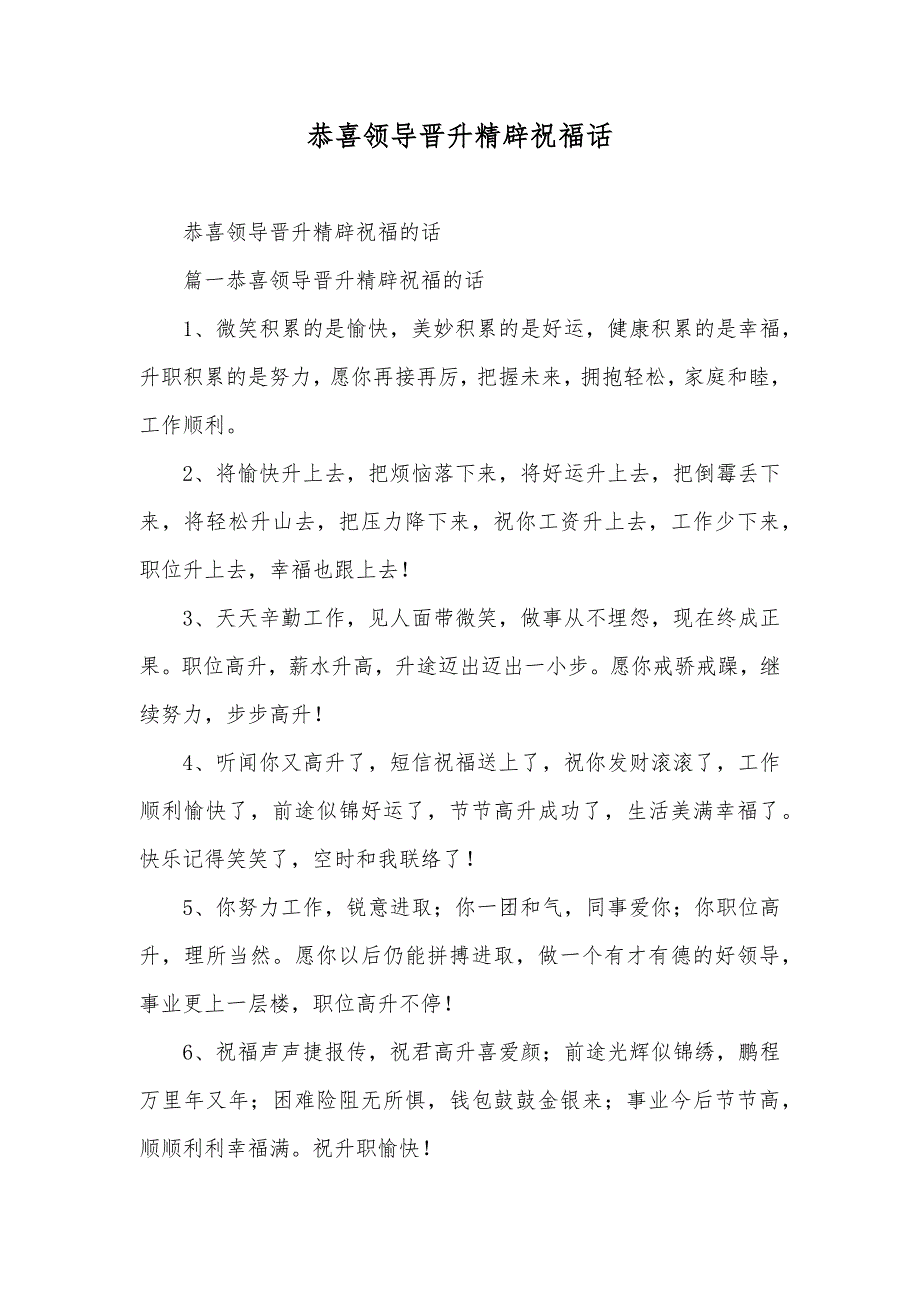 恭喜领导晋升精辟祝福话
恭喜领导晋升精辟祝福的话
篇一恭喜领导晋升精辟祝福的话
1、微笑积累的是愉快，美妙积累的是好运，健康积累的是幸福，
升职积累的是努力，愿你再接再厉，把握未来，拥抱轻松，家庭和睦，
工作顺利。
2、将愉快升上去，把烦恼落下来，将好运升上去，把倒霉丢下
来，将轻松升山去，把压力降下来，祝你工资升上去，工作少下来，
职位升上去，幸福也跟上去！
3、天天辛勤工作，见人面带微笑，做事从不埋怨，现在终成正
果。职位高升，薪水升高，升途迈出迈出一小步。愿你戒骄戒躁，继
续努力，步步高升！
4、听闻你又高升了，短信祝福送上了，祝你发财滚滚了，工作
顺利愉快了，前途似锦好运了，节节高升成功了，生活美满幸福了。
快乐记得笑笑了，空时和我联络了！
5、你努力工作，锐意进取；你一团和气，同事爱你；你职位高
升，理所当然。愿你以后仍能拼搏进取，做一个有才有德的好领导，
事业更上一层楼，职位高升不停！
6、祝福声声捷报传，祝君高升喜爱颜；前途光辉似锦绣，鹏程
万里年又年；困难险阻无所惧，钱包鼓鼓金银来；事业今后节节高，
顺顺利利幸福满。祝升职愉快！